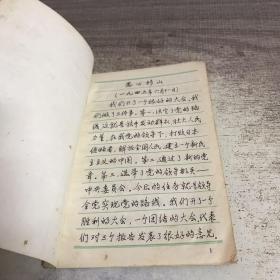 愚公移山
(一九四五年六月十一日)
我们开了一个很好的大会。我
们做了三件事：第一，决定了党的路
线，这就是放手发动群众，壮大人民
力量，在我党的领导下，打败日本
侵略者，解放全国人民，建立一个新民
主主义的中国。第二，通过了新的党
章。第三，选举了党的领导机关——
中央委员会。今后的任务就是领导
全党实现党的路线。我们开了一个
胜利的大会，一个团结的大会。代表
们对三个报告发表了很好的意见。
1